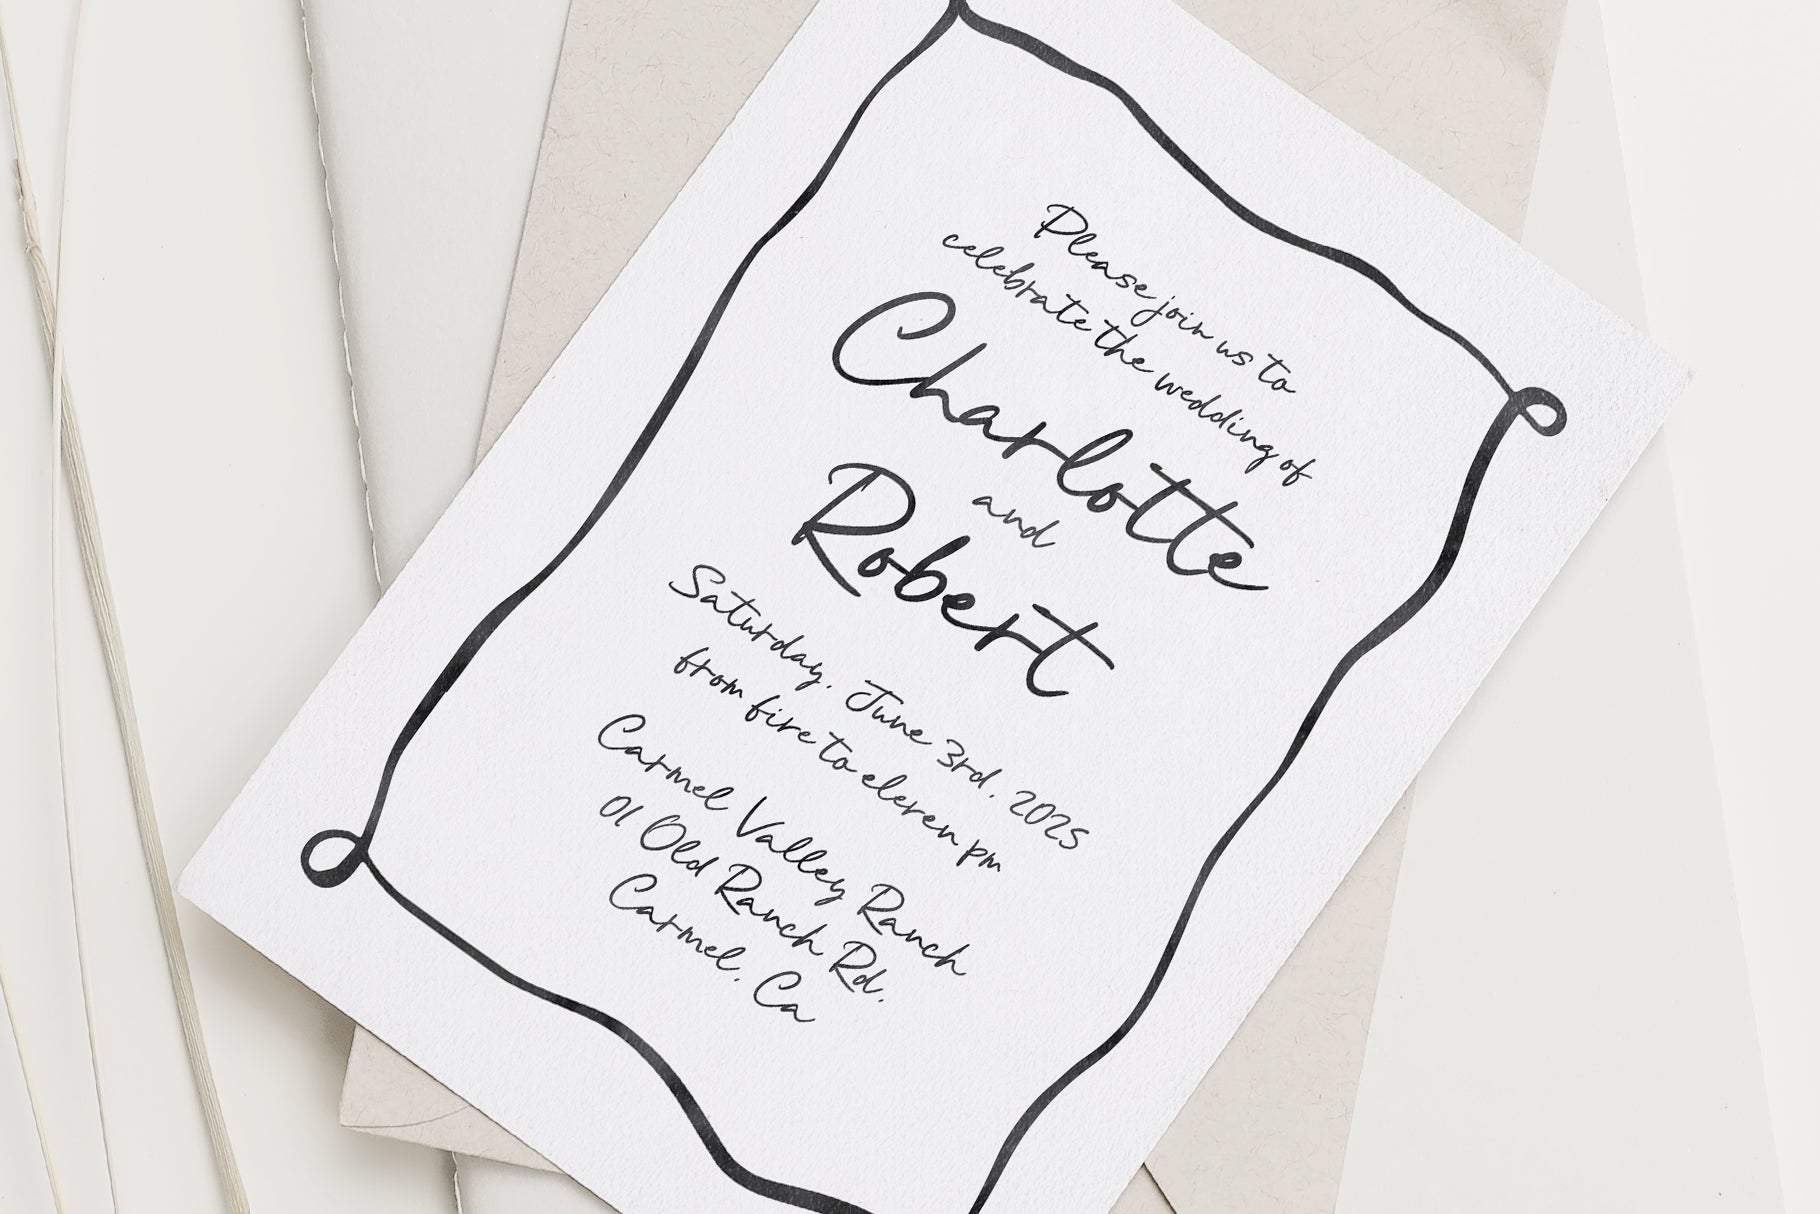 Please join us to
celebrate the wedding of
Charlotte
and
Robert
Saturday, June 3rd, 2025
from five to eleven pm
Carmel Valley Ranch
01 Old Ranch Rd.
Carmel, Ca